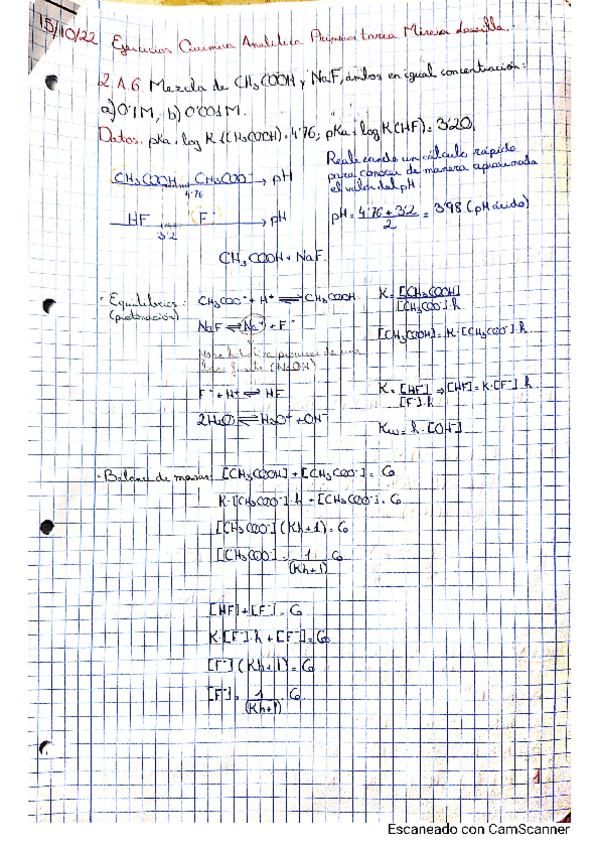 15/10/22 Ejercicios Química Analítica Primera tarea Mireia
2.A.6 Mezcla de CH₃COOH y NaF, ambos en igual concentración:
a) 0'1M, b) 0'001M.
Datos: pKa = log K (CH₃COOH) = 4'76; pKa = log K (HF) = 3'20.
Realizando un cálculo rápido
para conocer de manera aproximada
el valor del pH
CH₃COOH CH₃COO⁻ → pH
4'76
HF F⁻ → pH
3'2
pH = 4'76 + 3'2 / 2 = 3'98 (pH ácido)
CH₃COOH + NaF.
· Equilibrios:
(protonación)
CH₃COO⁻ + H⁺ ⇌ CH₃COOH K = [CH₃COOH] / [CH₃COO⁻]·h
NaF ⇌ Na⁺ + F⁻ [CH₃COOH] = K·[CH₃COO⁻]·h
(NaOH)
F⁻ + H⁺ ⇌ HF K = [HF] / [F⁻]·h ⇒ [HF] = K·[F⁻]·h
2H₂O ⇌ H₃O⁺ + OH⁻ Kw = h·[OH⁻]
· Balance de masas: [CH₃COOH] + [CH₃COO⁻] = C₀
K·[CH₃COO⁻]·h + [CH₃COO⁻] = C₀
[CH₃COO⁻] (Kh+1) = C₀
[CH₃COO⁻] = 1 / (Kh+1) C₀
[HF] + [F⁻] = C₀
K·[F⁻]·h + [F⁻] = C₀
[F⁻] (Kh+1) = C₀
[F⁻] = 1 / (Kh+1) · C₀
1
Escaneado con CamScanner